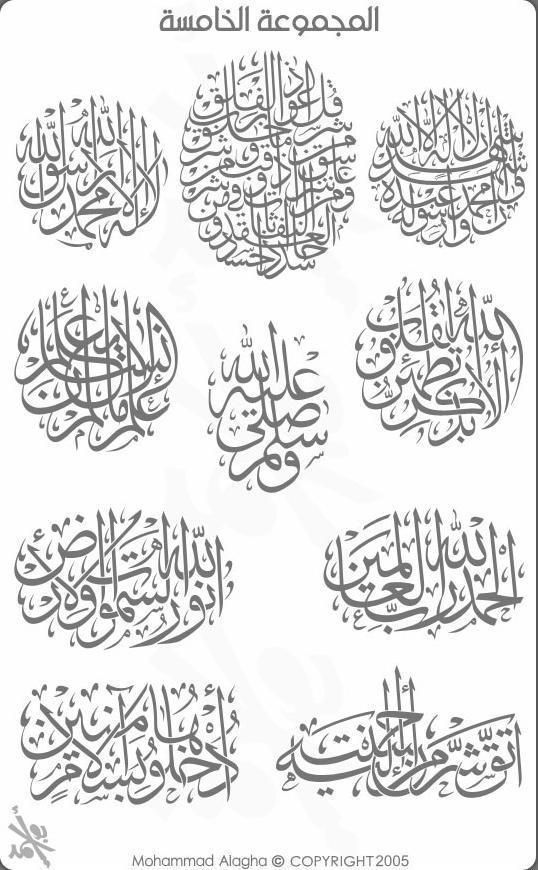 المجموعة الخامسة
لا إله إلا الله محمد رسول الله
قل أعوذ برب الفلق من شر ما خلق ومن شر غاسق إذا وقب ومن شر النفاثات في العقد ومن شر حاسد إذا حسد
أشهد أن لا إله إلا الله وأشهد أن محمدا عبده ورسوله
علم الإنسان ما لم يعلم
صلى الله عليه وسلم
ألا بذكر الله تطمئن القلوب
الله نور السموات والأرض
الحمد لله رب العالمين
ادخلوها بسلام آمنين
اتق شر من أحسنت إليه
Mohammad Alagha © COPYRIGHT2005